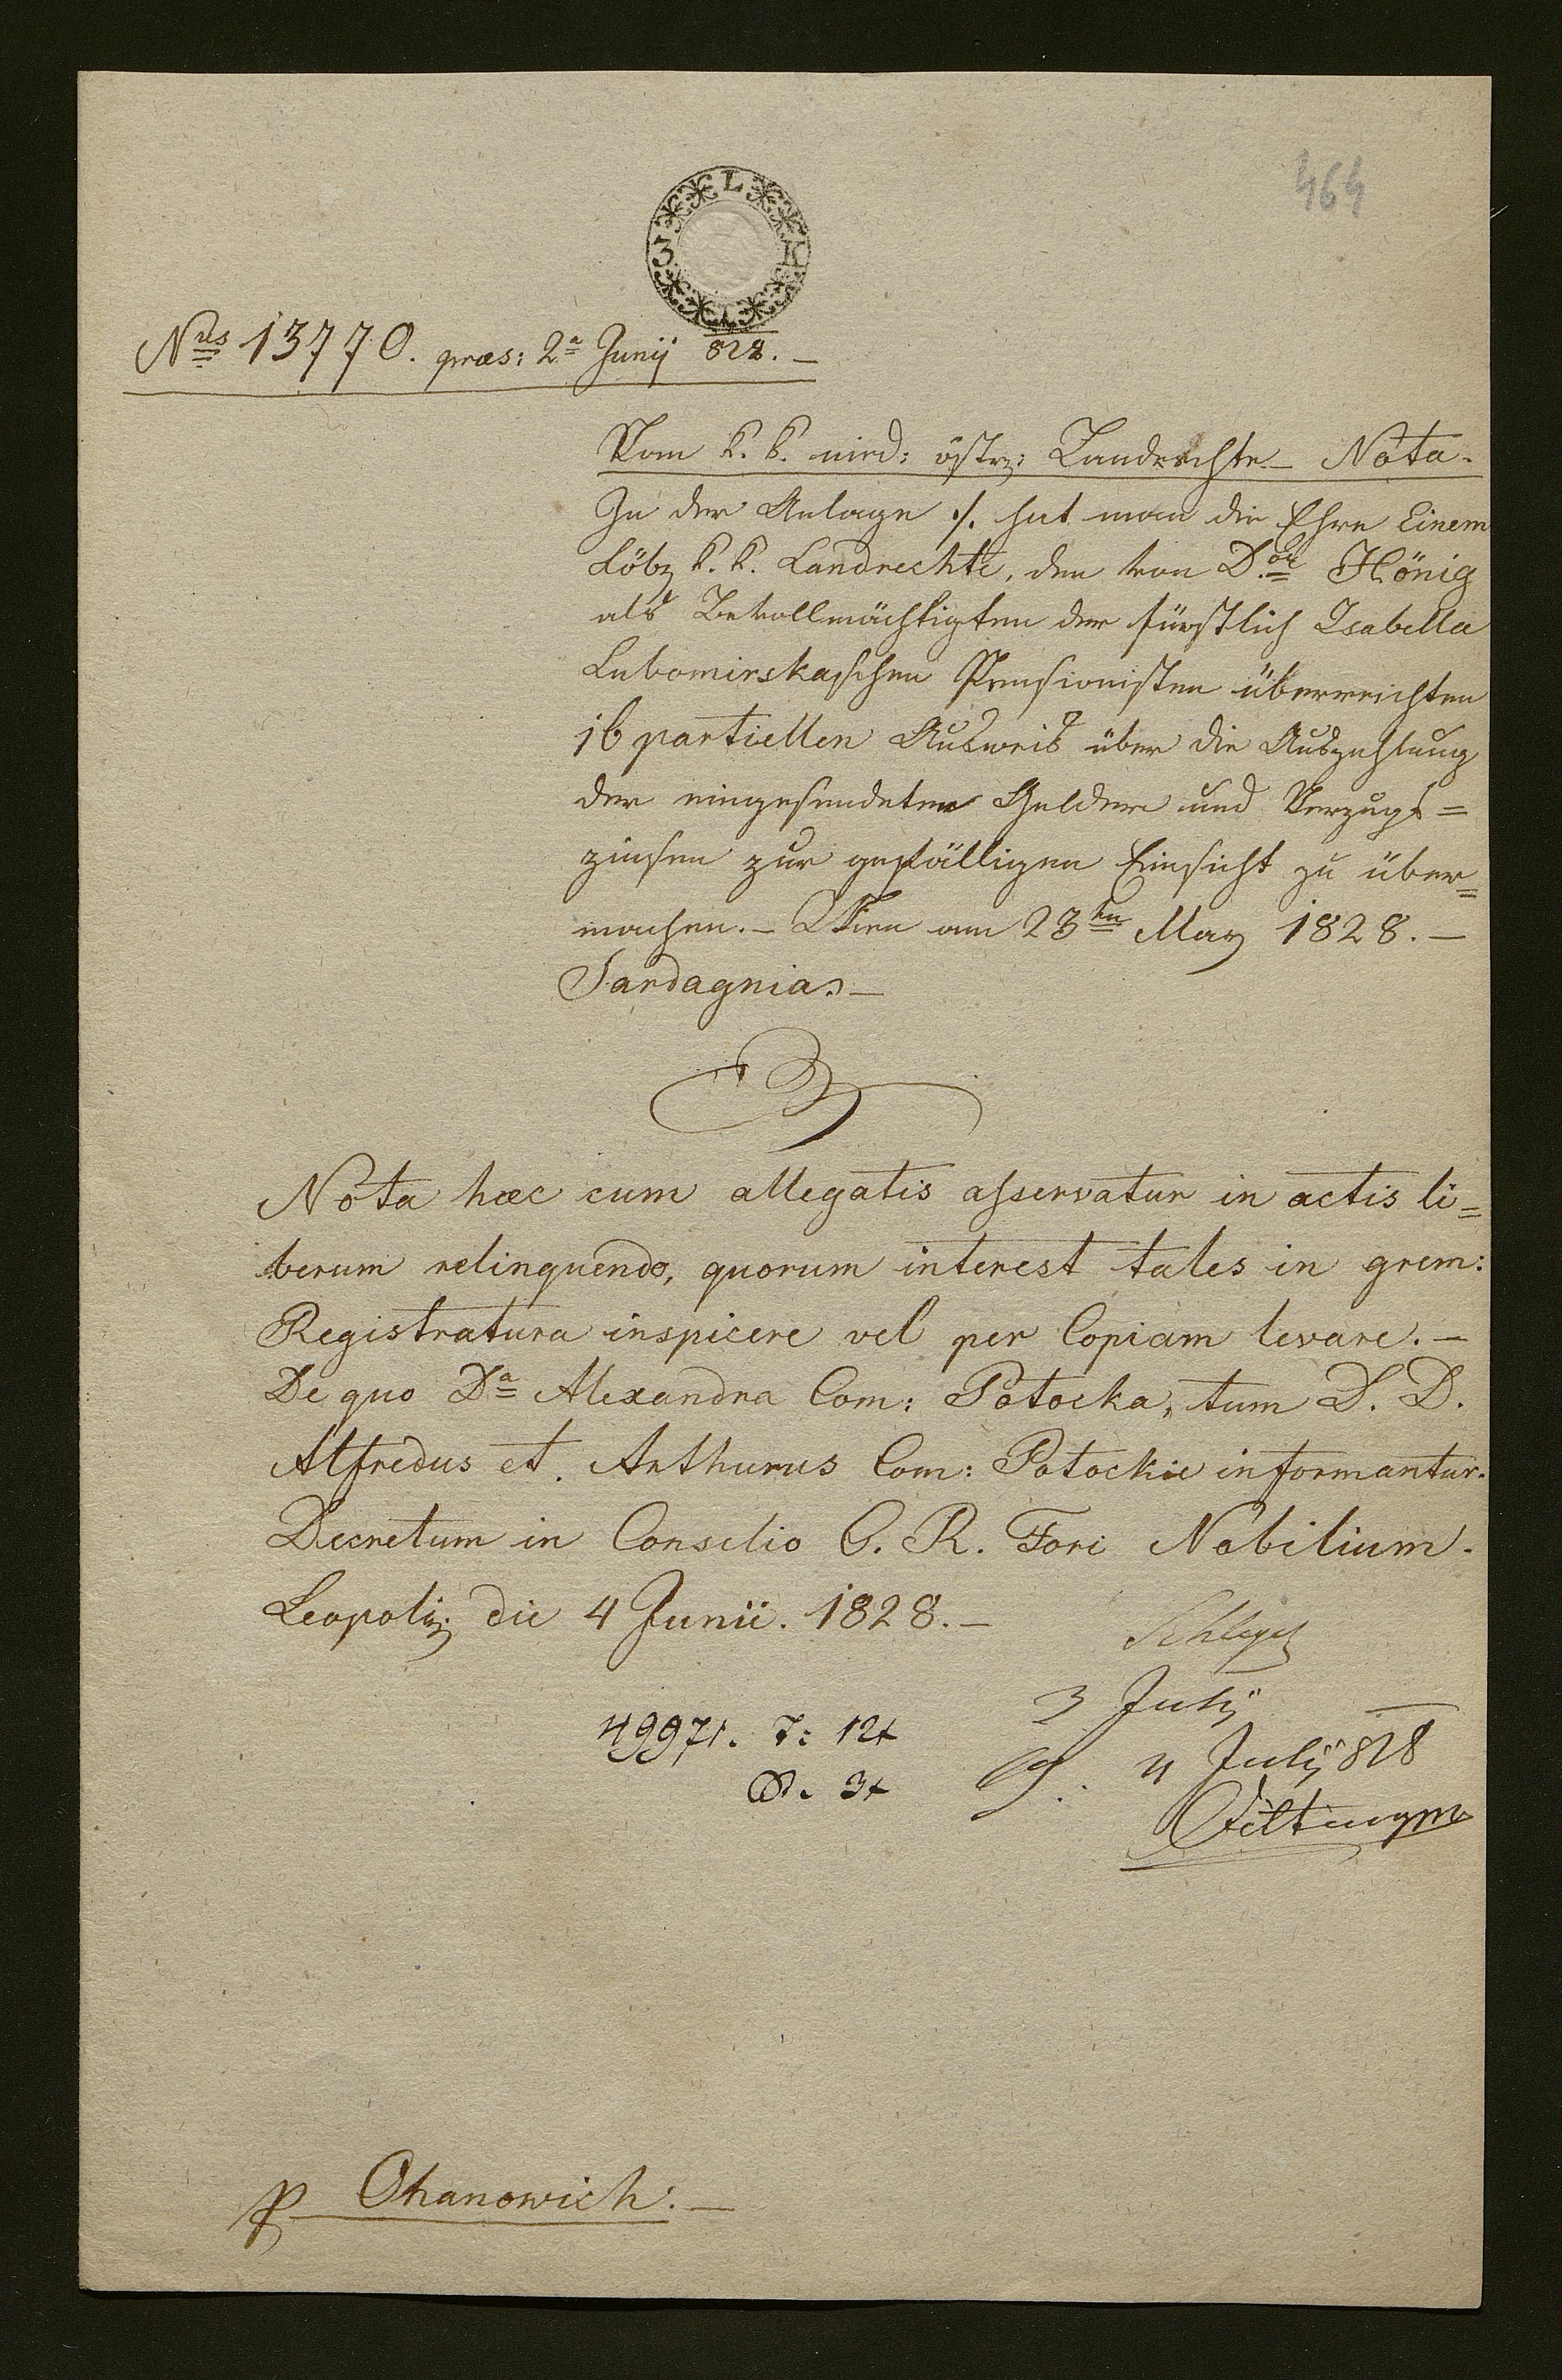 464
L
3 K
Nrus 13770. præs: 2a Junij 828. –
Vom k. k. nied: östrz: Landrechte – Nota.
In der Anlage ./. hat man die Ehre Einem
Löbz k. k. Landrechte, den von D.or Hönig
als Bevollmächtigten der fürstlich Isabella
Lubomirskaschen Pensionisten überreichten
16 partiellen Ausweis über die Auszahlung
der eingesendeten Gelder und Verzugs=
zinsen zur gefälligen Einsicht zu über=
machen. – Wien am 23ten May 1828. –
Sardagnia. –
Nota hæc cum allegatis asservatur in actis li=
berum relinquendo, quorum interest tales in grem:
Registratura inspicere vel per Copiam levare. –
De quo Da Alexandra Com: Potocka, tum D. D.
Alfredus et Arthurus Com: Potockie informantur.
Decretum in Consilio C. R. Fori Nobilium.
Leopoli die 4 Junii. 1828. –
Schlegel
3 Julij
49971. T: 12x
4 July 828
D. 3x
p Ohanowich. –